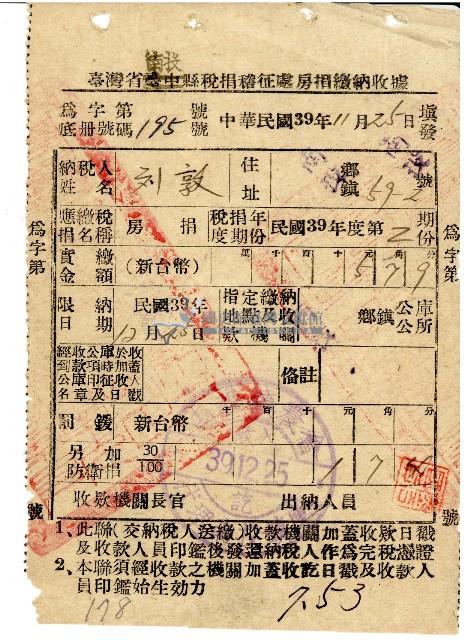 南投
臺灣省臺中縣稅捐稽征處房捐繳納收據
為字第 號
底冊號碼 195 號
中華民國39年11月25日 填發
納稅人姓名 刘敦 住址 鄉鎮 59-2 號
應繳稅捐名稱 房捐 稅捐年度期份 民國39年度第2期份
實繳金額 (新台幣) 萬千百十元角分 5 7 9
限納日期 民國39年12月25日 指定繳納地點及收款機關 鄉鎮公庫公所
經收公庫於收到款項時加蓋公庫印征收日戳名章及
備註
罰鍰 新台幣 千百十元角分
另加防衛捐 30/100 1 7 4
39.12.25
收款機關長官 出納人員
1、此聯(交納稅人送繳)收款機關加蓋收款日戳
及收款人員印鑑發還納稅人作為完稅憑證
2、本聯須經收款後機關加蓋收訖日戳及收款人
員印鑑始生效力
178
7.53
為字第 號
為字第 號